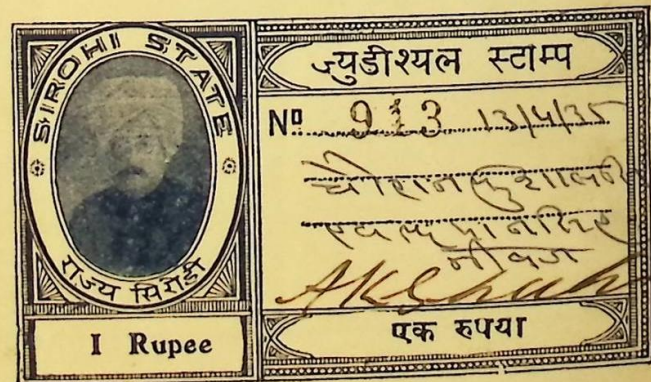 SIROHI STATE
राज्य सिरोही
I Rupee
ज्युडीश्यल स्टाम्प
Nº 913 13/4/35
चौहान
मानसिंह
नीबज
AKShah
एक रुपया